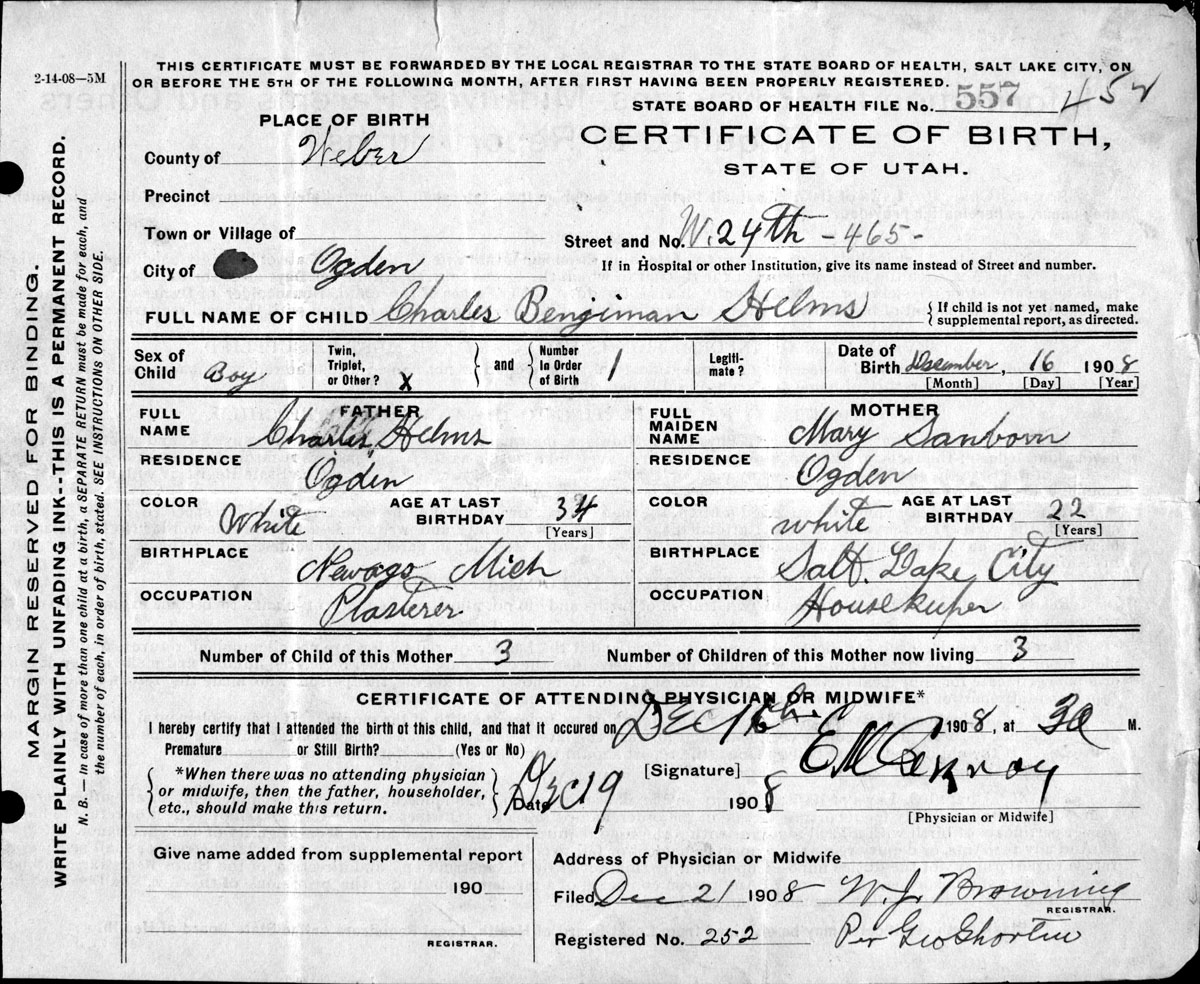 2-14-08—5M
THIS CERTIFICATE MUST BE FORWARDED BY THE LOCAL REGISTRAR TO THE STATE BOARD OF HEALTH, SALT LAKE CITY, ON
OR BEFORE THE 5TH OF THE FOLLOWING MONTH, AFTER FIRST HAVING BEEN PROPERLY REGISTERED.
STATE BOARD OF HEALTH FILE No. 557 452
PLACE OF BIRTH
CERTIFICATE OF BIRTH,
STATE OF UTAH.
County of Weber
Precinct
Town or Village of
Street and No. W. 24th - 465 -
City of Ogden
If in Hospital or other Institution, give its name instead of Street and number.
FULL NAME OF CHILD Charles Bengiman Helms
{ If child is not yet named, make
supplemental report, as directed.
Sex of Child Boy
Twin, Triplet, or Other? X
} and { Number In Order of Birth 1
Legiti-mate?
Date of Birth December, 16 1908
[Month] [Day] [Year]
FATHER
FULL NAME Charles Helms
RESIDENCE Ogden
COLOR White AGE AT LAST BIRTHDAY 34
[Years]
BIRTHPLACE Newago Mich
OCCUPATION Plasterer
MOTHER
FULL MAIDEN NAME Mary Sanborn
RESIDENCE Ogden
COLOR white AGE AT LAST BIRTHDAY 22
[Years]
BIRTHPLACE Salt Lake City
OCCUPATION Housekeeper
Number of Child of this Mother 3 Number of Children of this Mother now living 3
CERTIFICATE OF ATTENDING PHYSICIAN OR MIDWIFE*
I hereby certify that I attended the birth of this child, and that it occured on Dec 16 1908, at 3a M.
Premature or Still Birth? (Yes or No)
{ *When there was no attending physician
or midwife, then the father, householder,
etc., should make this return. }
[Signature] E M Conroy
Date Dec 19 1908
[Physician or Midwife]
Give name added from supplemental report
190
REGISTRAR.
Address of Physician or Midwife
Filed Dec 21 1908 W. J. Browning
REGISTRAR.
Registered No. 252 Per Geo Shorten
MARGIN RESERVED FOR BINDING.
WRITE PLAINLY WITH UNFADING INK--THIS IS A PERMANENT RECORD.
N. B. — In case of more than one child at a birth, a SEPARATE RETURN must be made for each, and
the number of each, in order of birth, stated. SEE INSTRUCTIONS ON OTHER SIDE.